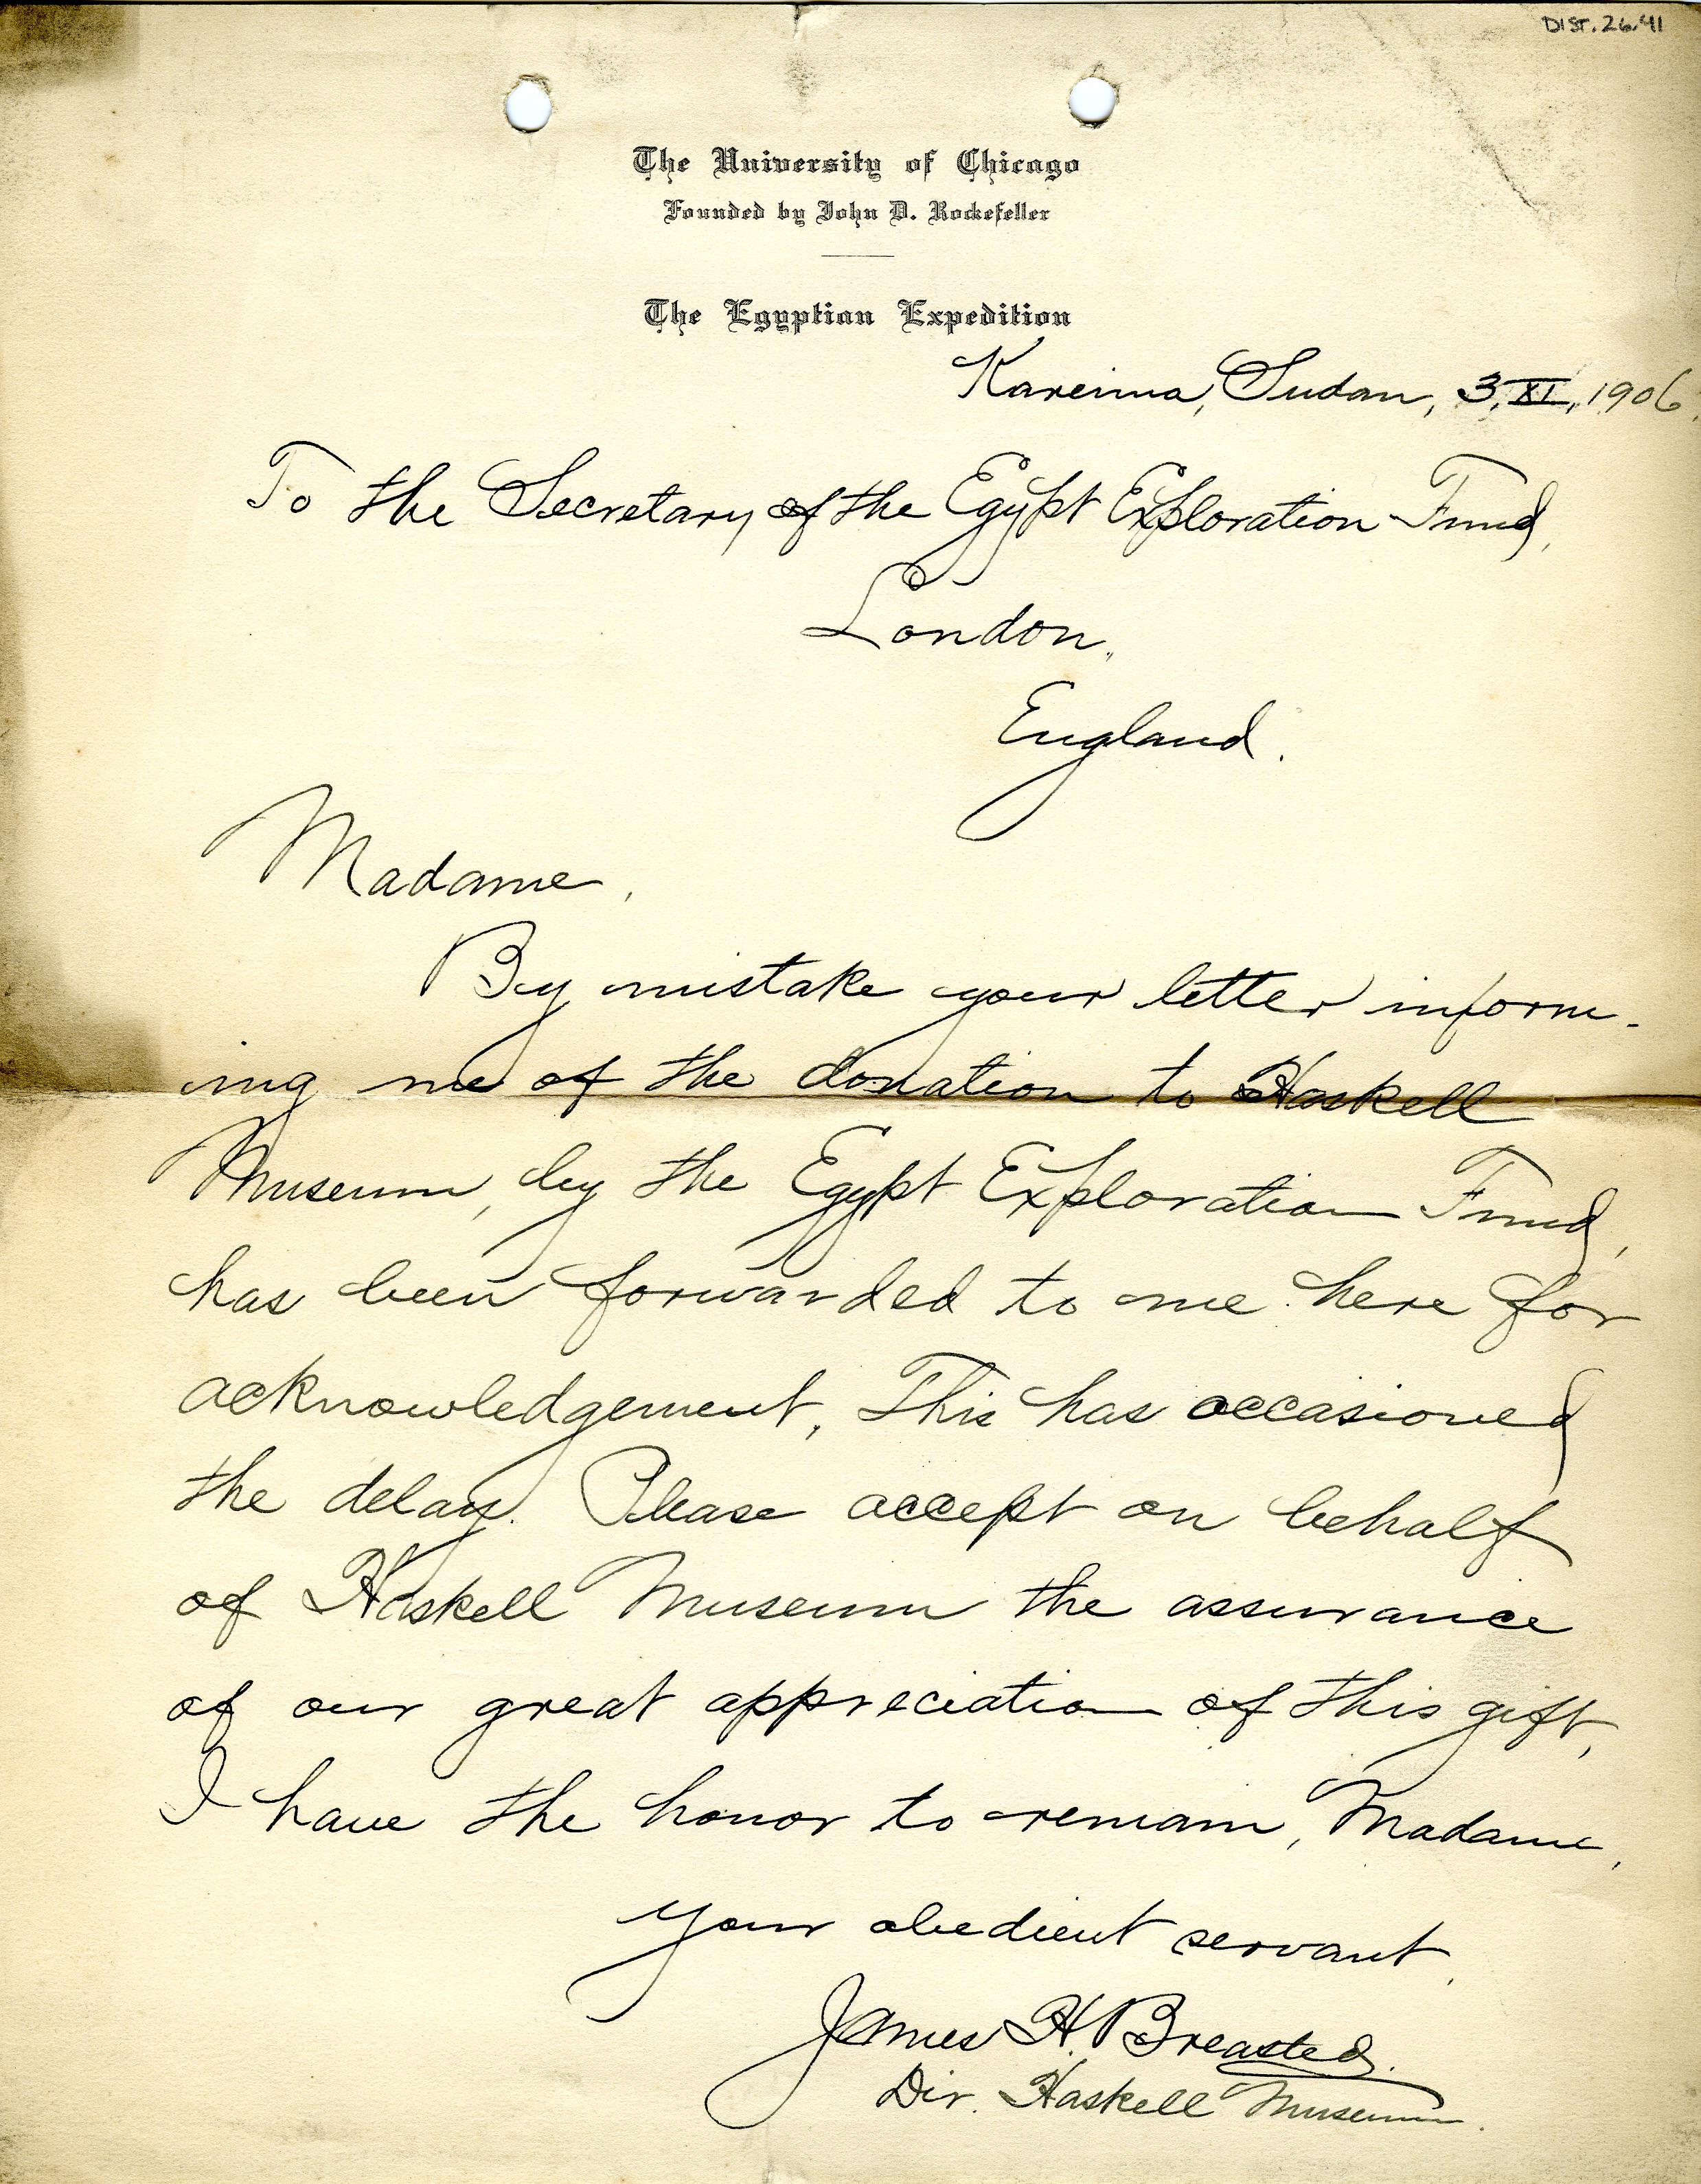 DIST. 26.41
The University of Chicago
Founded by John D. Rockefeller
The Egyptian Expedition
Kareima, Sudan, 3, XI, 1906.
To the Secretary of the Egypt Exploration Fund,
London,
England.
Madame,
By mistake your letter inform-
ing me of the donation to Haskell
Museum, by the Egypt Exploration Fund,
has been forwarded to me here for
acknowledgement. This has occasioned
the delay. Please accept on behalf
of Haskell Museum the assurance
of our great appreciation of this gift.
I have the honor to remain, Madame,
your obedient servant,
James H. Breasted.
Dir. Haskell Museum.